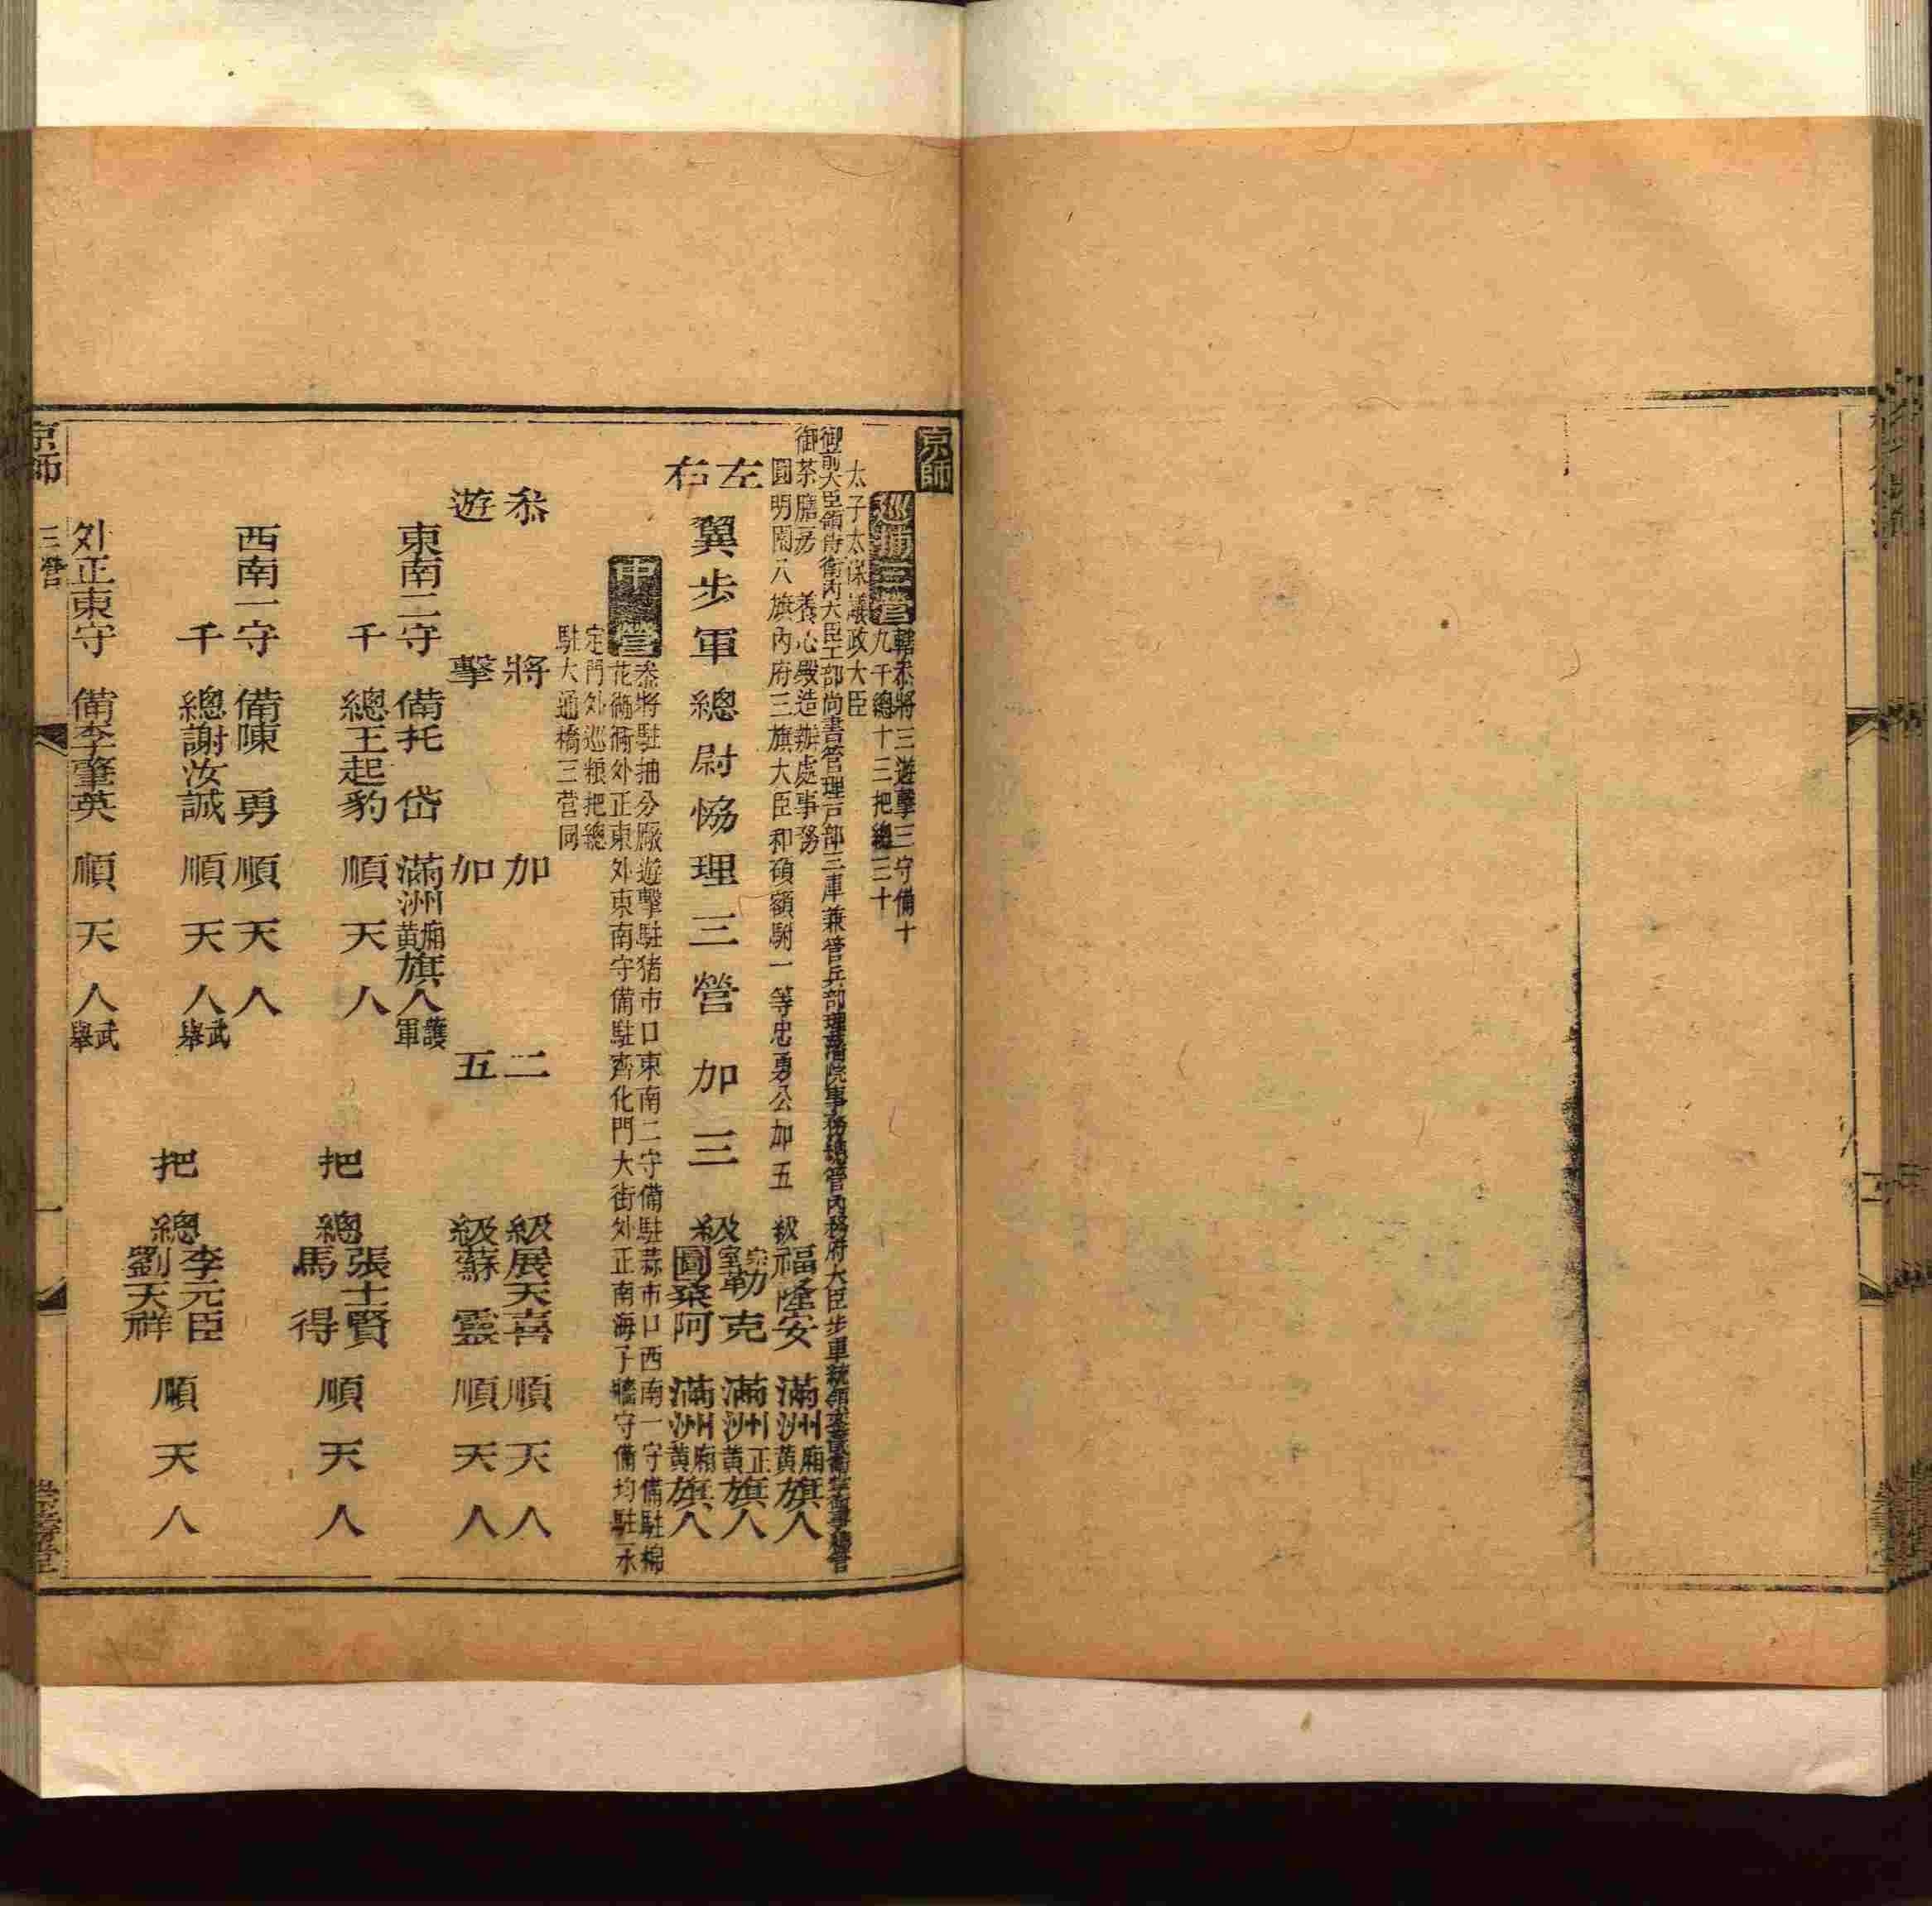 京師
巡捕三營
轄叅將三遊擊三守備十
九千總十三把總三十
太子太保議政大臣
御前大臣領侍衛內大臣工部尚書管理戸部三庫兼管兵部理藩院事務總管內務府大臣步軍統領
御茶膳房養心殿造辦處事務
圓明園八旗內府三旗大臣和碩額駙一等忠勇公加五級福隆安滿洲廂黃旗人
左翼步軍總尉恊理三營加三級宗室勒克滿洲正黃旗人
右圖桒阿滿洲廂黃旗人
中營
叅將駐抽分廠遊擊駐猪市口東南二守備駐蒜市口西南一守備駐棉
花衚衕外正東外東南守備駐齊化門大街外正南海子牆守備均駐永
定門外巡粮把總
駐大通橋三营同
叅將加二級展天喜順天人
遊擊加五級蘇靈順天人
東南二守備托岱滿洲廂黃旗人護軍
千總王起豹順天人
把總張士賢順天人
馬得
西南一守備陳勇順天人
千總謝汝誠順天人武舉
把總李元臣順天人
劉天祥
外正東守備李肇英順天人武舉
京師
三營
一